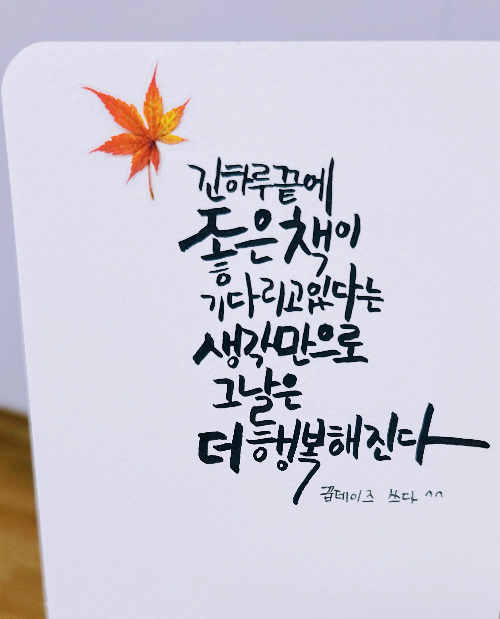 긴하루끝에
좋은책이
기다리고있다는
생각만으로
그날은
더행복해진다
꿈데이즈 쓰다 ^^